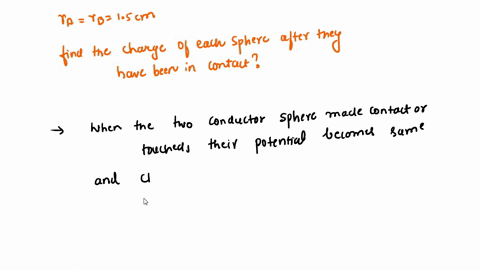 rA = rB = 1.5 cm
find the charge of each sphere after they
have been in contact?
→ When the two conductor sphere made contact or
touched, their potential becomes same
and cl